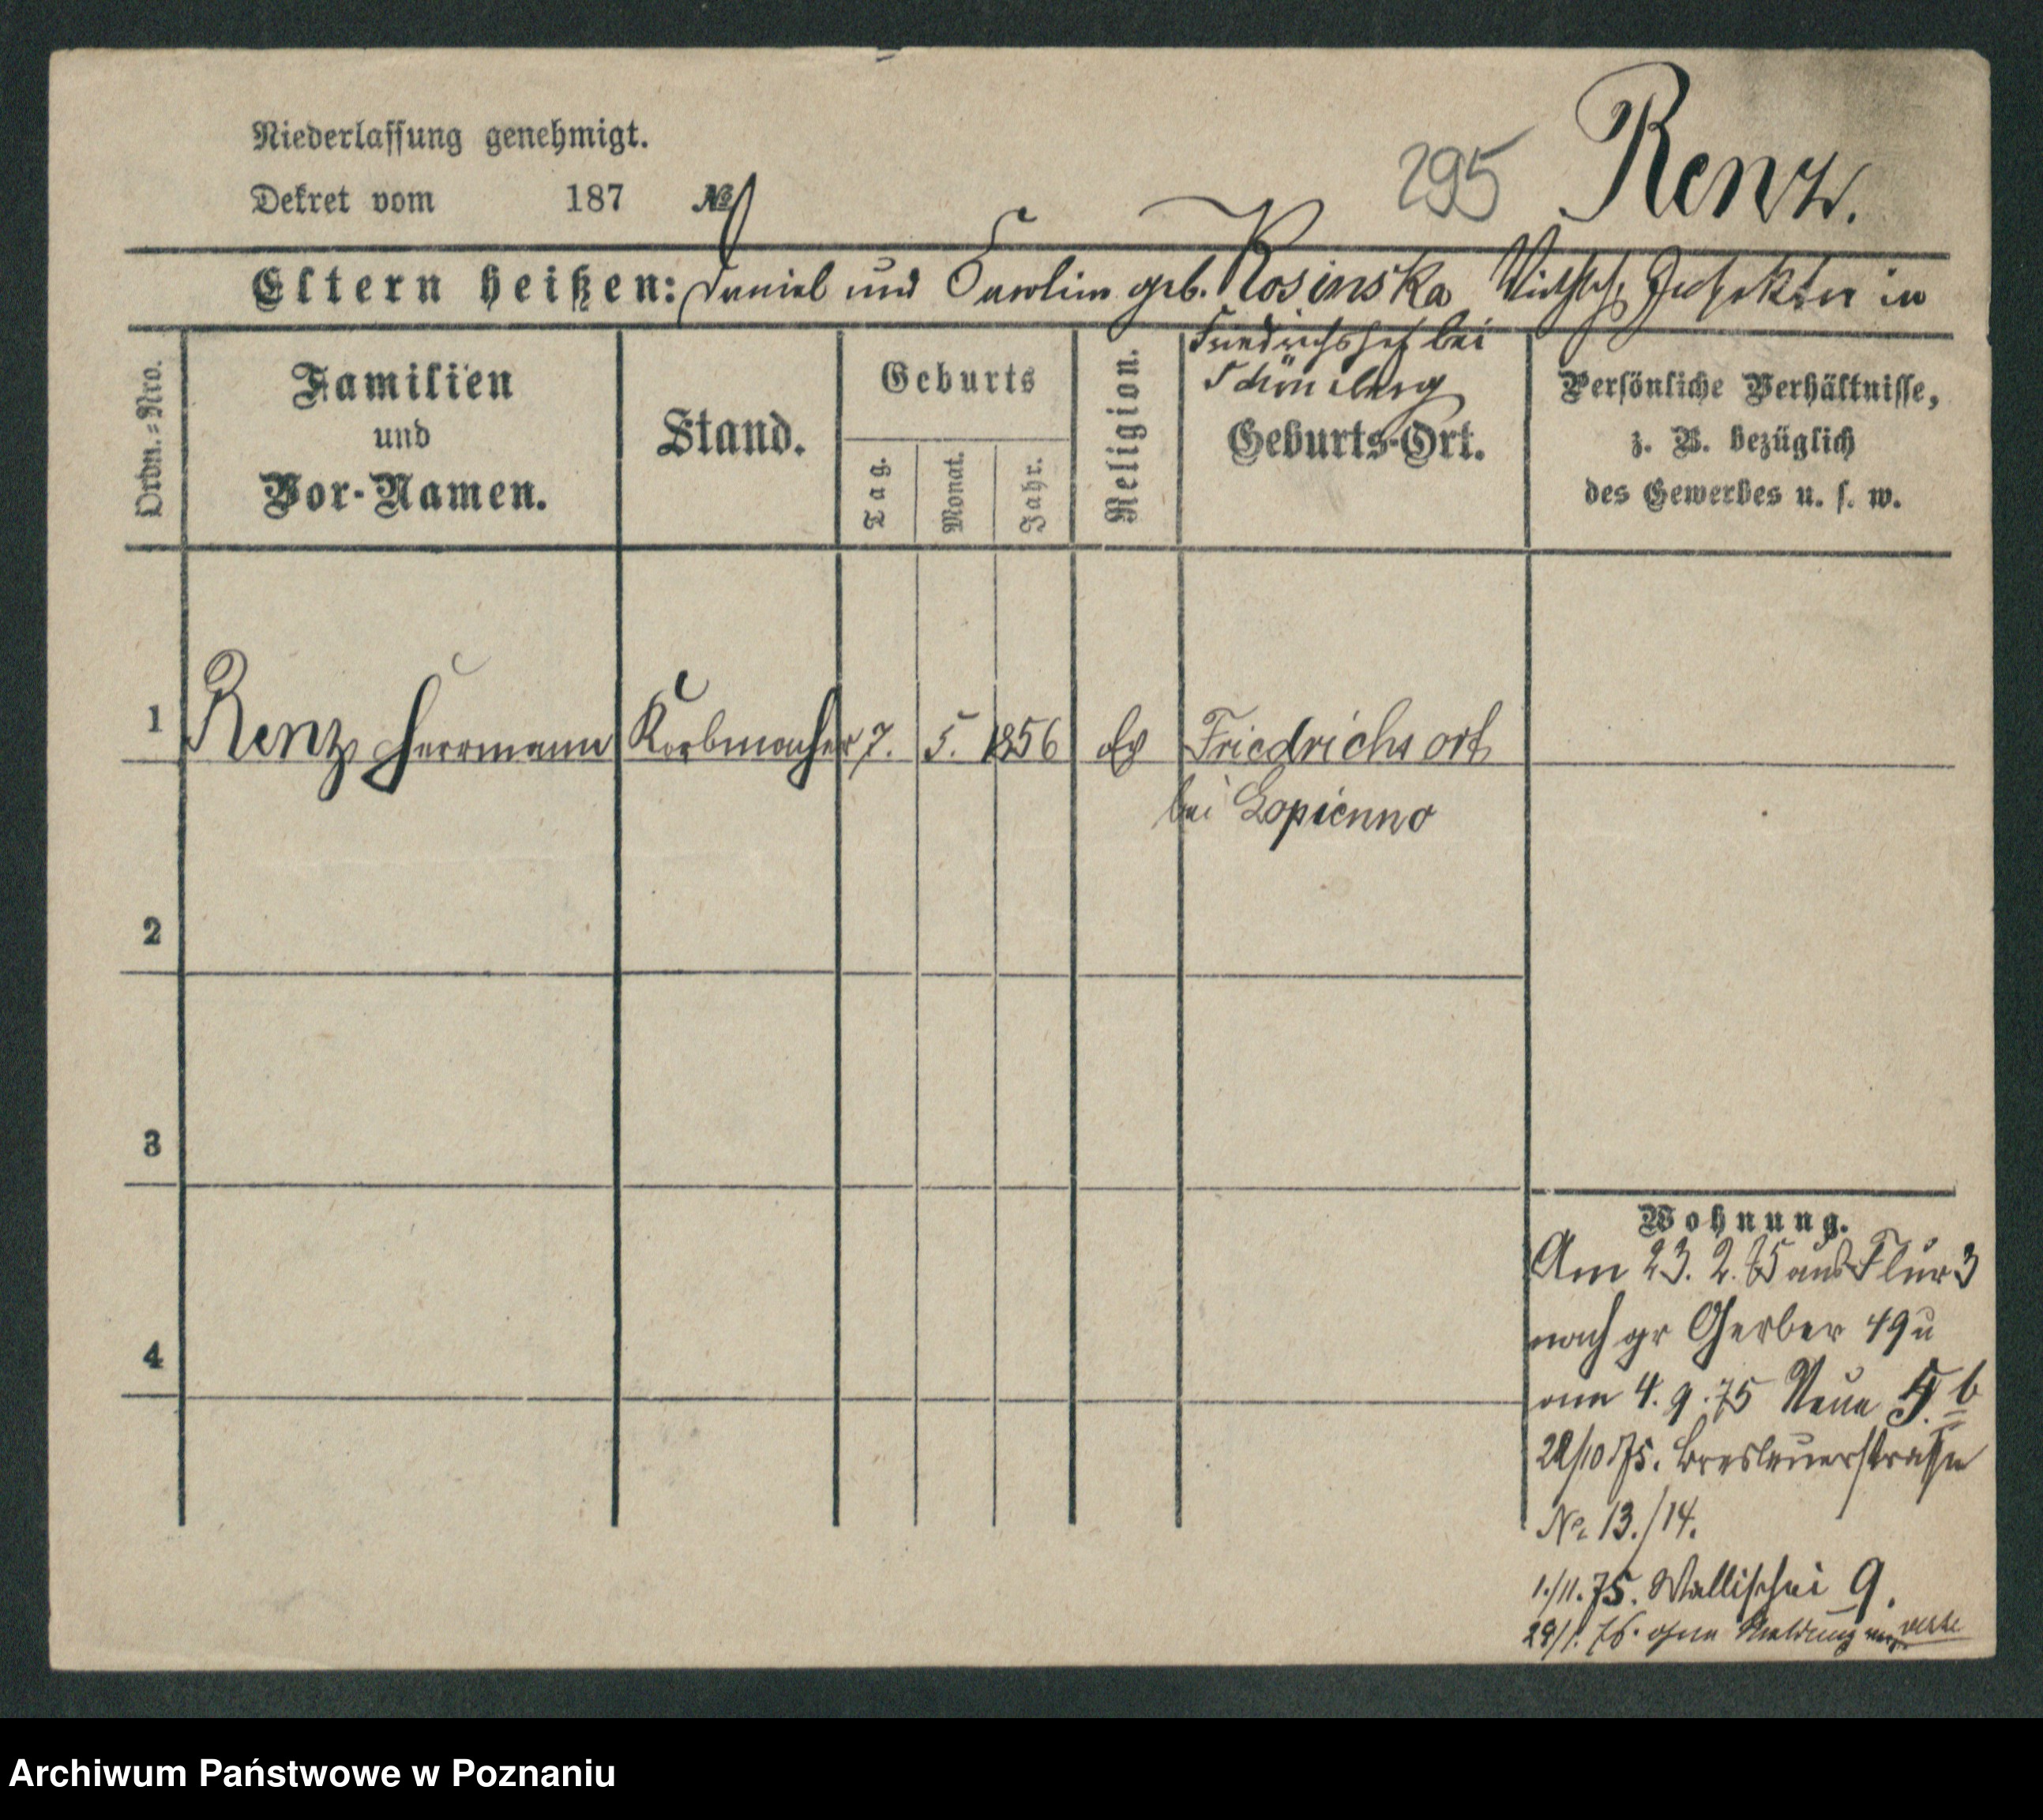 Niederlassung genehmigt.
Dekret vom 187 №
295 Renz.
Eltern heißen: Daniel und Carolin geb. Rosinska Wirthsch. Inspektor in
Friedrichshof bei
Schöneberg
Ordn.-Nro.
Familien
und
Vor-Namen.
Stand.
Geburts
Tag.
Monat.
Jahr.
Religion.
Geburts-Ort.
Persönliche Verhältnisse,
z. B. bezüglich
des Gewerbes u. s. w.
1 Renz Herrmann Korbmacher 7. 5. 1856 Friedrichsort
bei Lopienno
2
3
4
Wohnung.
Am 23. 2. 75 aus Flur 3
nach gr Gerber 49 u
am 4. 9. 75 Neue 5. b
/10 75. Breslauerstraße
No. 13./14.
1./11. 75. Wallischei 9.
29/1. 76. ohne Meldung
Archiwum Państwowe w Poznaniu